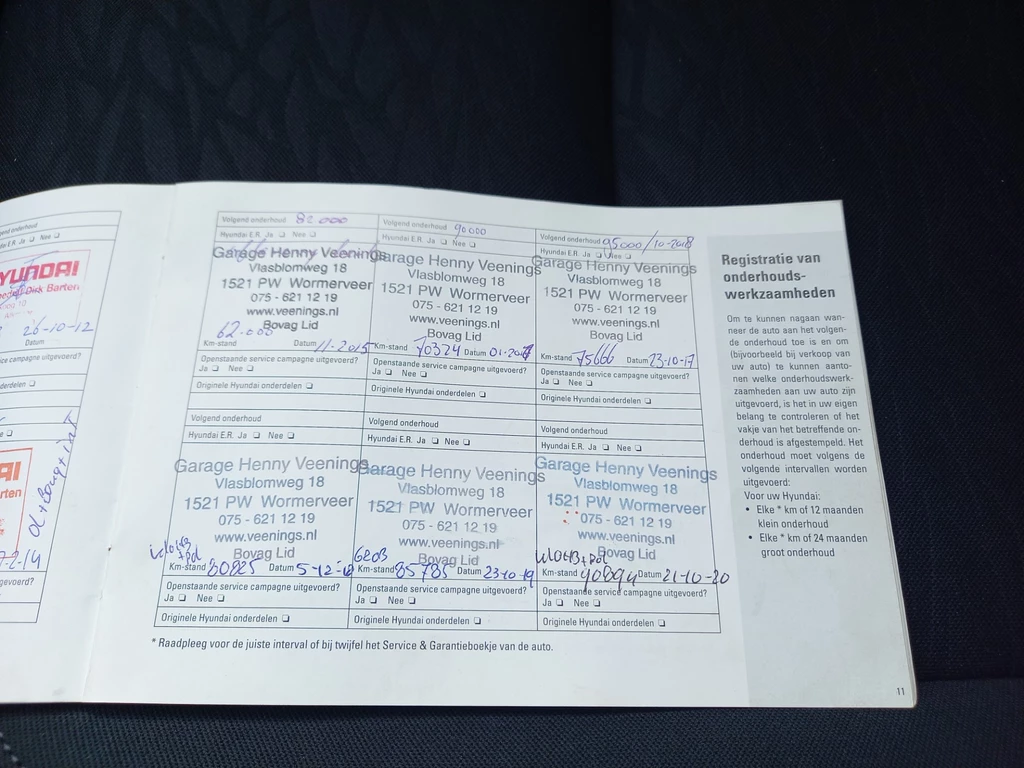 end onderhoud
dai E.R. Ja ❏ Nee ❏
YUNDAI
Dirk Barten
26-10-12
Datum
ce campagne uitgevoerd?
derdelen ❏
AI
rten
ol + Boug + int
-2-14
gevoerd?
Volgend onderhoud 82.000
Hyundai E.R. Ja ❏ Nee ❏
Garage Henny Veenings
Vlasblomweg 18
1521 PW Wormerveer
075 - 621 12 19
www.veenings.nl
Bovag Lid
62.000
Km-stand Datum 11-2015
Openstaande service campagne uitgevoerd?
Ja ❏ Nee ❏
Originele Hyundai onderdelen ❏
Volgend onderhoud 90000
Hyundai E.R. Ja ❏ Nee ❏
Garage Henny Veenings
Vlasblomweg 18
1521 PW Wormerveer
075 - 621 12 19
www.veenings.nl
Bovag Lid
Km-stand 70324 Datum 01-2017
Openstaande service campagne uitgevoerd?
Ja ❏ Nee ❏
Originele Hyundai onderdelen ❏
Volgend onderhoud 95000/10-2018
Hyundai E.R. Ja ❏ Nee ❏
Garage Henny Veenings
Vlasblomweg 18
1521 PW Wormerveer
075 - 621 12 19
www.veenings.nl
Bovag Lid
Km-stand 75666 Datum 23-10-17
Openstaande service campagne uitgevoerd?
Ja ❏ Nee ❏
Originele Hyundai onderdelen ❏
Volgend onderhoud
Hyundai E.R. Ja ❏ Nee ❏
Garage Henny Veenings
Vlasblomweg 18
1521 PW Wormerveer
075 - 621 12 19
www.veenings.nl
Bovag Lid
+ pol
Km-stand 80825 Datum 5-12-18
Openstaande service campagne uitgevoerd?
Ja ❏ Nee ❏
Originele Hyundai onderdelen ❏
Volgend onderhoud
Hyundai E.R. Ja ❏ Nee ❏
Garage Henny Veenings
Vlasblomweg 18
1521 PW Wormerveer
075 - 621 12 19
www.veenings.nl
Bovag Lid
Km-stand 85785 Datum 23-10-19
Openstaande service campagne uitgevoerd?
Ja ❏ Nee ❏
Originele Hyundai onderdelen ❏
Volgend onderhoud
Hyundai E.R. Ja ❏ Nee ❏
Garage Henny Veenings
Vlasblomweg 18
1521 PW Wormerveer
075 - 621 12 19
www.veenings.nl
Bovag Lid
+ pol
Km-stand 90894 Datum 21-10-20
Openstaande service campagne uitgevoerd?
Ja ❏ Nee ❏
Originele Hyundai onderdelen ❏
* Raadpleeg voor de juiste interval of bij twijfel het Service & Garantieboekje van de auto.
Registratie van
onderhouds-
werkzaamheden
Om te kunnen nagaan wan-
neer de auto aan het volgen-
de onderhoud toe is en om
(bijvoorbeeld bij verkoop van
uw auto) te kunnen aanto-
nen welke onderhoudswerk-
zaamheden aan uw auto zijn
uitgevoerd, is het in uw eigen
belang te controleren of het
vakje van het betreffende on-
derhoud is afgestempeld. Het
onderhoud moet volgens de
volgende intervallen worden
uitgevoerd:
Voor uw Hyundai:
• Elke * km of 12 maanden
klein onderhoud
• Elke * km of 24 maanden
groot onderhoud
11